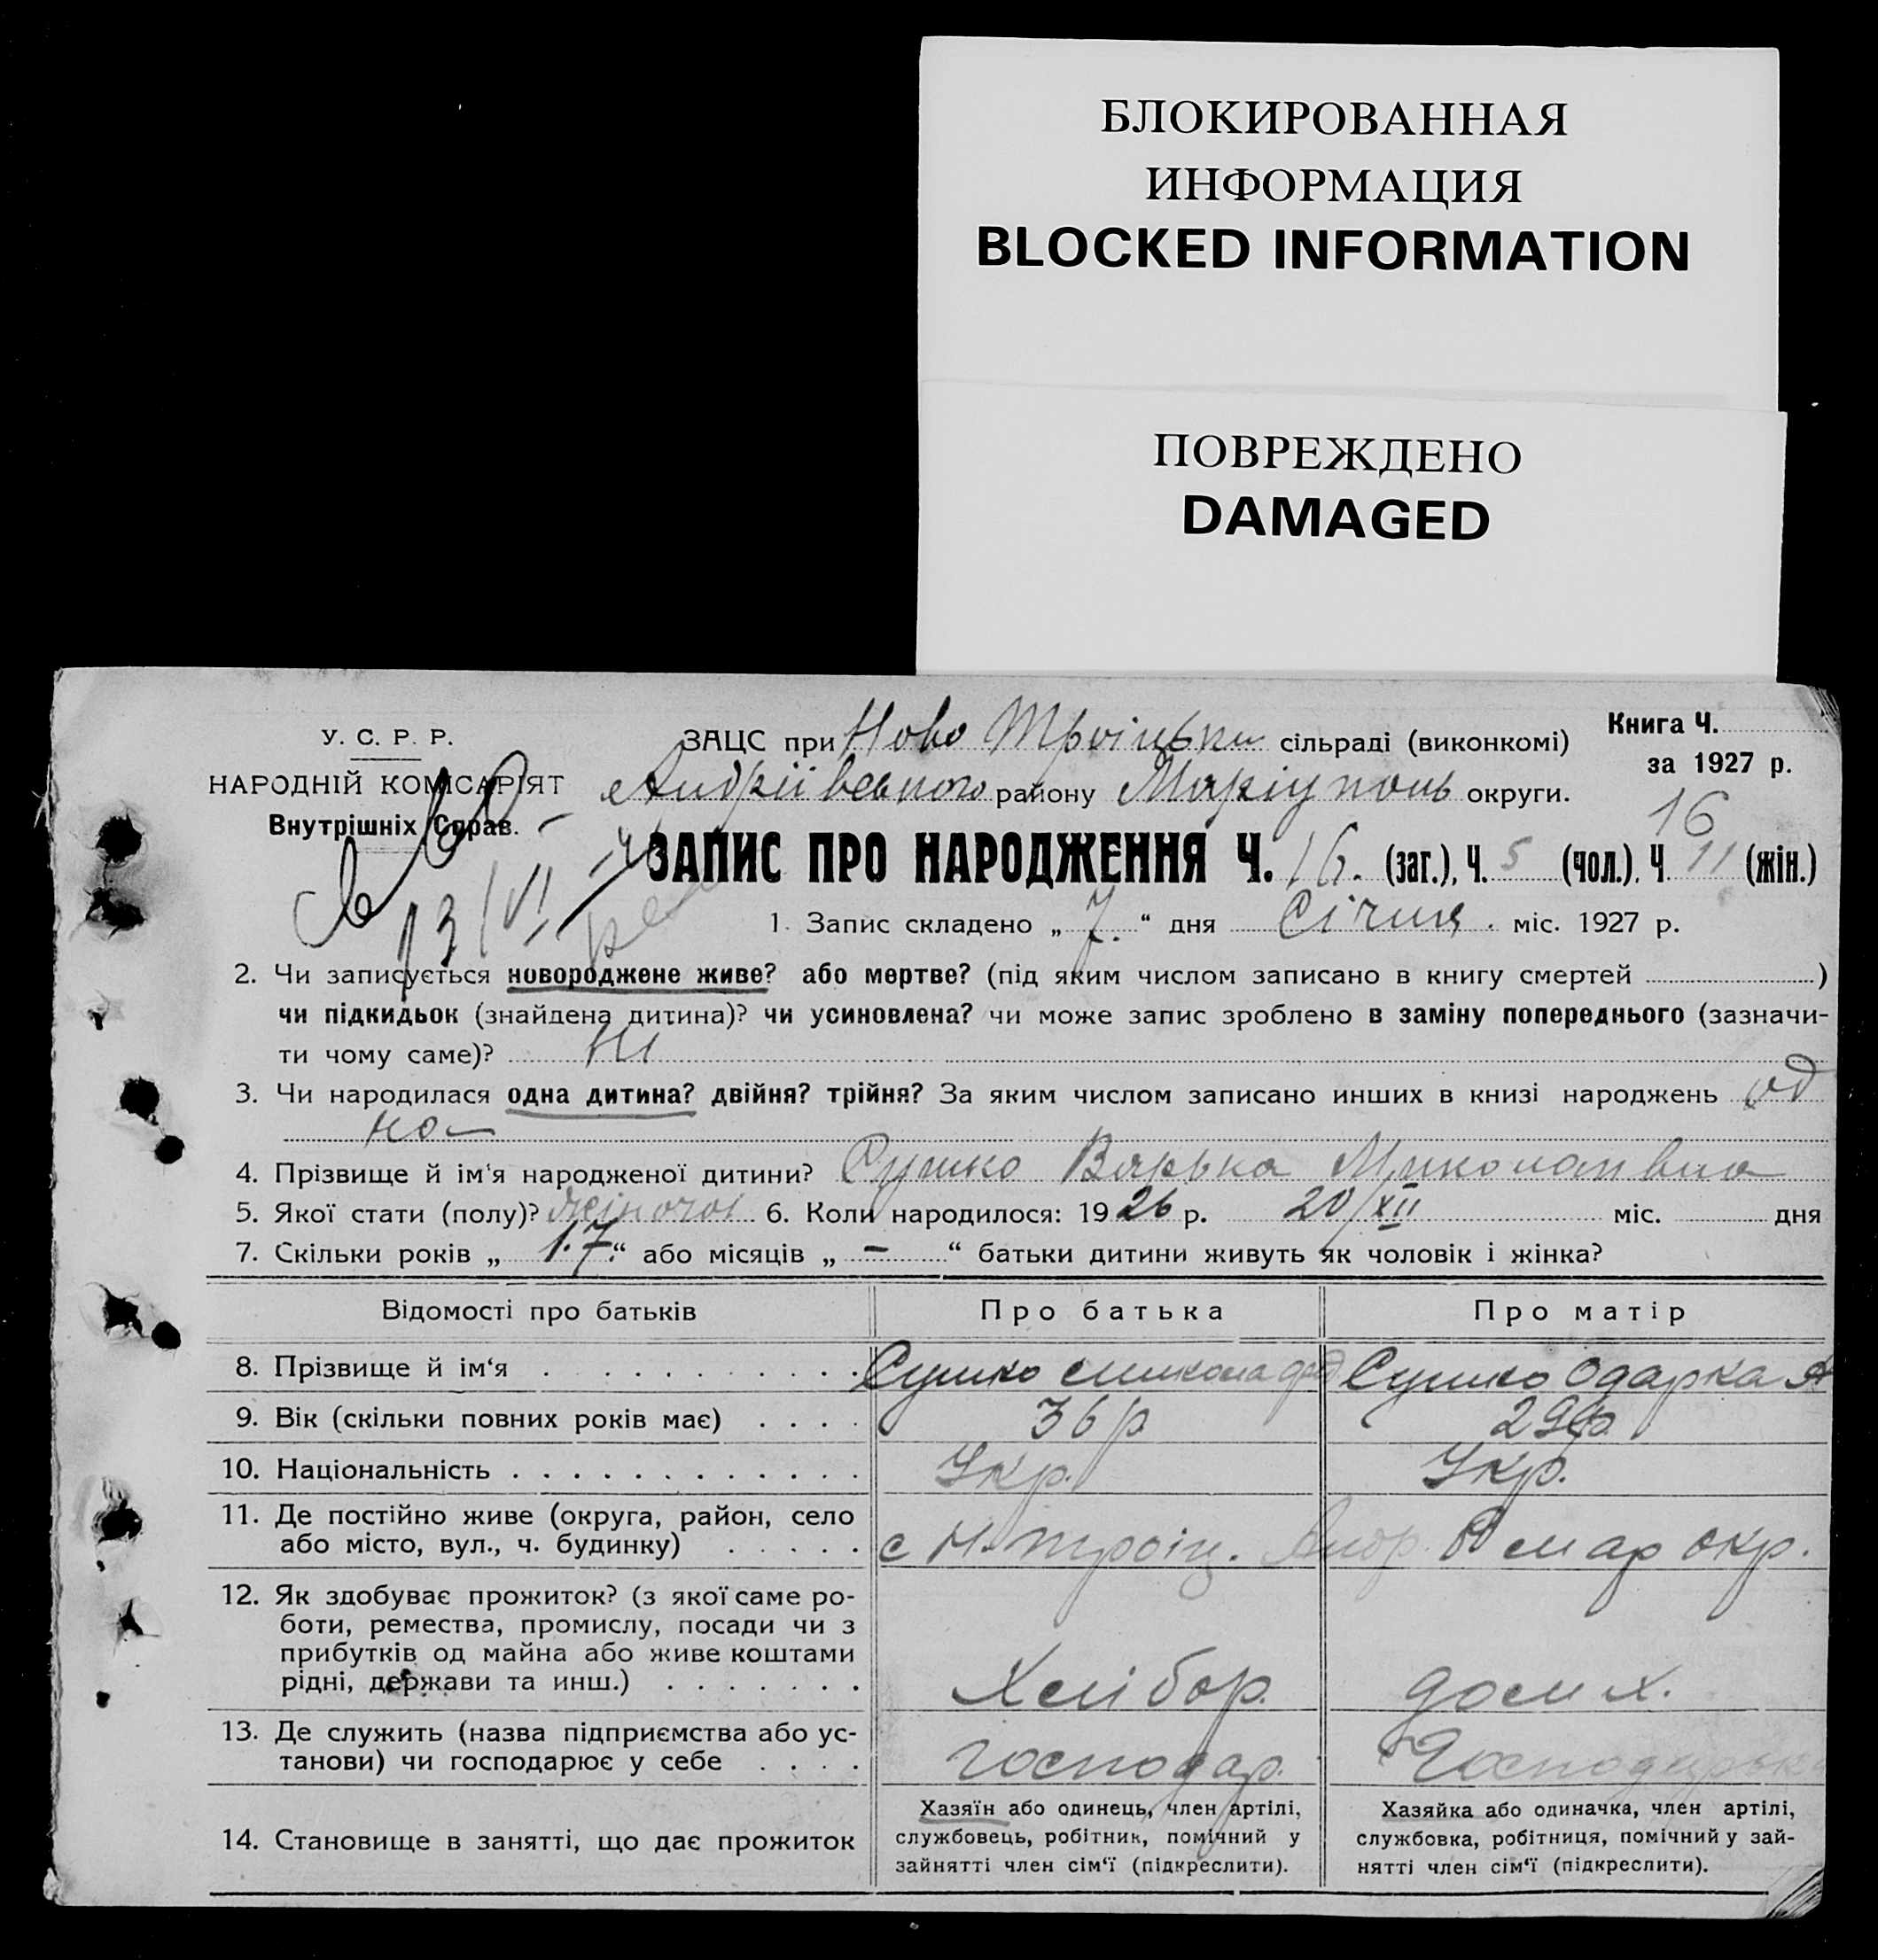 БЛОКИРОВАННАЯ
ИНФОРМАЦИЯ
BLOCKED INFORMATION
ПОВРЕЖДЕНО
DAMAGED
У. С. Р. Р.
НАРОДНІЙ КОМІСАРІЯТ
Внутрішніх Справ.
ЗАЦС при Ново Троіцькі сільраді (виконкомі)
Книга Ч.
за 1927 р.
Андріівського району Маріуполь округи.
16
ЗАПИС ПРО НАРОДЖЕННЯ Ч. 16. (заг.), Ч. 5 (чол.), Ч. 11 (жін.)
13/VI
1. Запис складено „ 7. “ дня Січня. міс. 1927 р.
2. Чи записується новороджене живе? або мертве? (під яким числом записано в книгу смертей )
чи підкидьок (знайдена дитина)? чи усиновлена? чи може запис зроблено в заміну попереднього (зазначи-
ти чому саме)? Ні
3. Чи народилася одна дитина? двійня? трійня? За яким числом записано инших в книзі народжень од
на
4. Прізвище й ім‘я народженої дитини? Сушко Варька Миколаівна
5. Якої стати (полу)? жіночоі 6. Коли народилося: 1926 р. 20/XII міс. дня
7. Скільки років „ 17. “ або місяців „ – “ батьки дитини живуть як чоловік і жінка?
Відомості про батьків Про батька Про матір
8. Прізвище й ім‘я Сушко Микола Сушко Одарка А
9. Вік (скільки повних років має) 36 р. 29 р.
10. Національність Укр. Укр.
11. Де постійно живе (округа, район, село
або місто, вул., ч. будинку) с Н-Троіц. Андр. Р Мар окр.
12. Як здобуває прожиток? (з якої саме ро-
боти, ремества, промислу, посади чи з
прибутків од майна або живе коштами
рідні, держави та инш.) Хлібор. дом х.
13. Де служить (назва підприємства або ус-
танови) чи господарює у себе господар. Господарька
14. Становище в занятті, що дає прожиток
Хазяїн або одинець, член артілі,
службовець, робітник, помічний у
зайнятті член сім‘ї (підкреслити).
Хазяйка або одиначка, член артілі,
службовка, робітниця, помічний у зай-
нятті член сім‘ї (підкреслити).